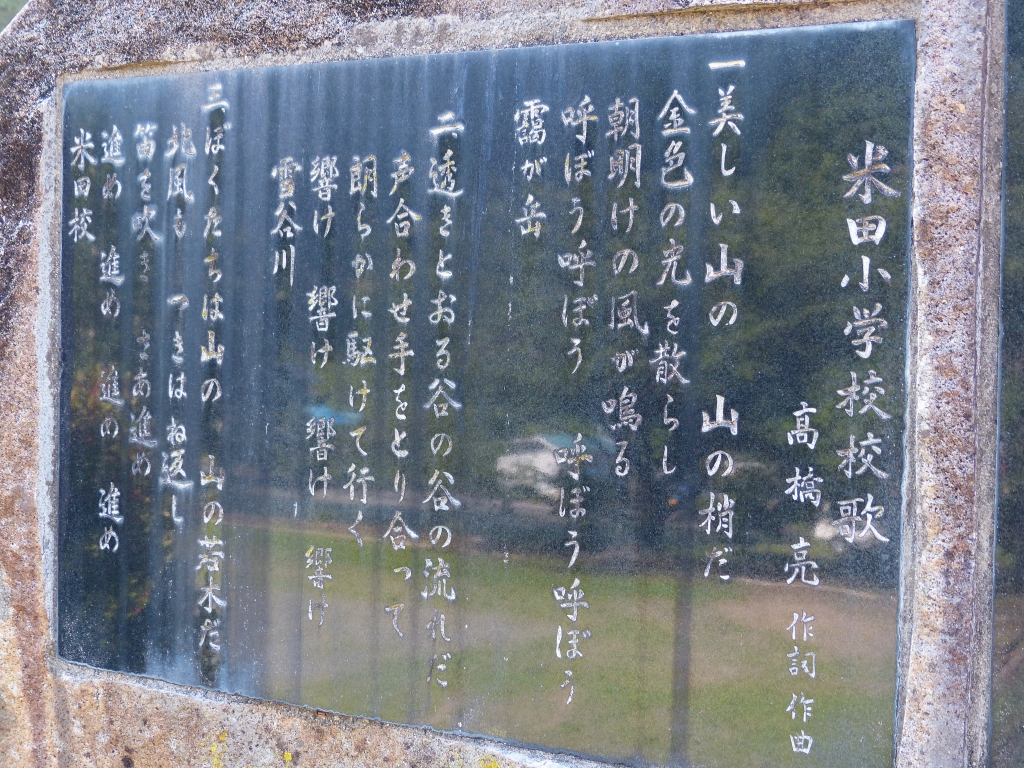 米田小学校校歌
高橋 亮 作詞 作曲
一 美しい山の 山の梢だ
金色の光を散らし
朝明けの風が鳴る
呼ぼう呼ぼう 呼ぼう呼ぼう
靄が岳
二 透きとおる谷の谷の流れだ
声合わせ手をとり合って
朗らかに駆けて行く
響け 響け 響け 響け
雪谷川
三 ぼくたちは山の 山の若木だ
北風も つきはね返し
笛を吹き さあ進め
進め 進め 進め 進め
米田校